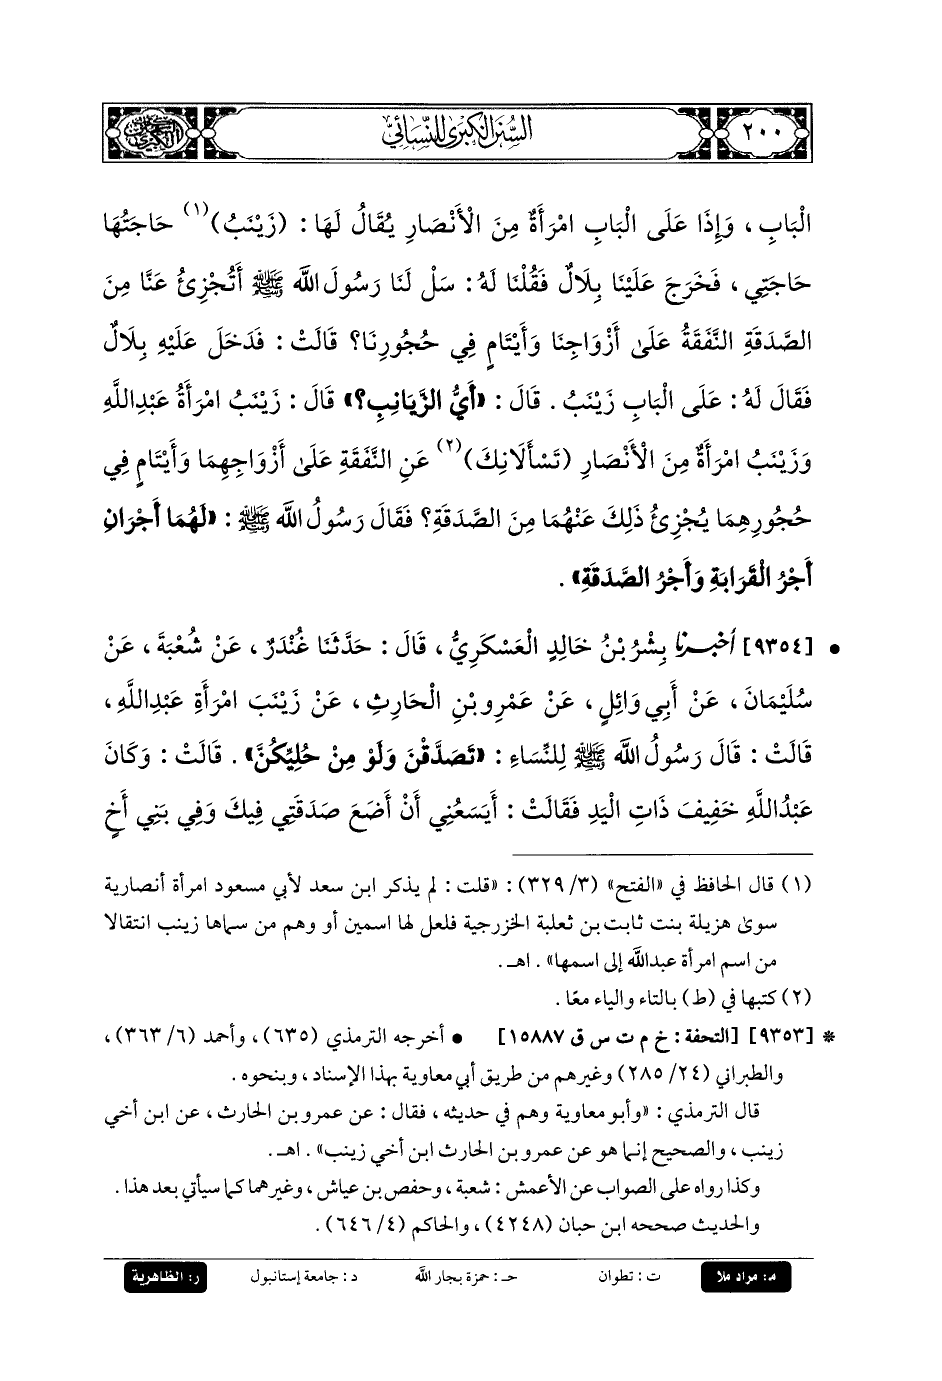 ٢٠٠
السُّنَنُ الكِبْرَىٰ لِلنَّسَائِيِّ
الْبَابِ ، وَإِذَا عَلَى الْبَابِ امْرَأَةٌ مِنَ الْأَنْصَارِ يُقَالُ لَهَا : (زَيْنَبُ)(١) حَاجَتُهَا
حَاجَتِي ، فَخَرَجَ عَلَيْنَا بِلَالٌ فَقُلْنَا لَهُ : سَلْ لَنَا رَسُولَ اللَّه ﷺ أَتُجْزِئُ عَنَّا مِنَ
الصَّدَقَةِ النَّفَقَةُ عَلَىٰ أَزْوَاجِنَا وَأَيْتَامٍ فِي حُجُورِنَا؟ قَالَتْ : فَدَخَلَ عَلَيْهِ بِلَالٌ
فَقَالَ لَهُ : عَلَى الْبَابِ زَيْنَبُ . قَالَ : «أَيُّ الزَّيَانِبِ؟» قَالَ : زَيْنَبُ امْرَأَةُ عَبْدِاللَّهِ
وَزَيْنَبُ امْرَأَةٌ مِنَ الْأَنْصَارِ (تَسْأَلَانِكَ)(٢) عَنِ النَّفَقَةِ عَلَىٰ أَزْوَاجِهِمَا وَأَيْتَامٍ فِي
حُجُورِهِمَا يُجْزِئُ ذَلِكَ عَنْهُمَا مِنَ الصَّدَقَةِ؟ فَقَالَ رَسُولُ اللَّه ﷺ : «لَهُمَا أَجْرَانِ
أَجْرُ الْقَرَابَةِ وَأَجْرُ الصَّدَقَةِ» .
• [٩٣٥٤] أَخْبَرَنَا بِشْرُ بْنُ خَالِدٍ الْعَسْكَرِيُّ ، قَالَ : حَدَّثَنَا غُنْدَرٌ ، عَنْ شُعْبَةَ ، عَنْ
سُلَيْمَانَ ، عَنْ أَبِي وَائِلٍ ، عَنْ عَمْرِو بْنِ الْحَارِثِ ، عَنْ زَيْنَبَ امْرَأَةِ عَبْدِاللَّهِ ،
قَالَتْ : قَالَ رَسُولُ اللَّه ﷺ لِلنِّسَاءِ : «تَصَدَّقْنَ وَلَوْ مِنْ حُلِيِّكُنَّ» . قَالَتْ : وَكَانَ
عَبْدُاللَّهِ خَفِيفَ ذَاتِ الْيَدِ فَقَالَتْ : أَيَسَعُنِي أَنْ أَضَعَ صَدَقَتِي فِيكَ وَفِي بَنِي أَخٍ
(١) قال الحافظ في «الفتح» (٣/ ٣٢٩) : «قلت : لم يذكر ابن سعد لأبي مسعود امرأة أنصارية
سوىٰ هزيلة بنت ثابت بن ثعلبة الخزرجية فلعل لها اسمين أو وهم من سماها زينب انتقالا
من اسم امرأة عبداللَّه إلى اسمها» . اهـ .
(٢) كتبها في (ط) بالتاء والياء معًا .
* [٩٣٥٣] [التحفة : خ م ت س ق ١٥٨٨٧] • أخرجه الترمذي (٦٣٥) ، وأحمد (٦/ ٣٦٣) ،
والطبراني (٢٤/ ٢٨٥) وغيرهم من طريق أبي معاوية بهذا الإسناد ، وبنحوه .
قال الترمذي : «وأبو معاوية وهم في حديثه ، فقال : عن عمرو بن الحارث ، عن ابن أخي
زينب ، والصحيح إنما هو عن عمرو بن الحارث ابن أخي زينب» . اهـ .
وكذا رواه على الصواب عن الأعمش : شعبة ، وحفص بن عياش ، وغيرهما كما سيأتي بعد هذا .
والحديث صححه ابن حبان (٤٢٤٨) ، والحاكم (٤/ ٦٤٦) .
م: مراد ملا ت : تطوان حـ : حمزة بجار اللَّه د : جامعة إستانبول ر: الظاهرية